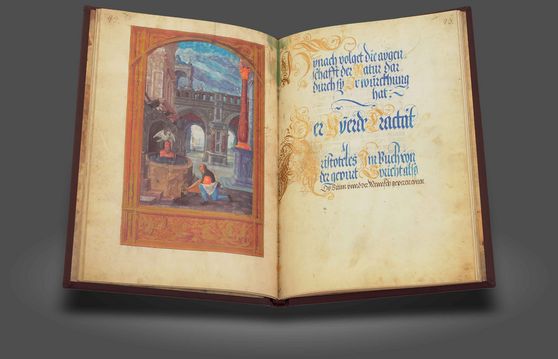 Hÿnach volget die aÿgen
schafft der Natur dar
durch sÿ Ir würckhung
hat:
Der Vierde Tractat
Aristoteles Im Buch von
der geburt Spricht also
Dÿ Sunn vnnd der Mensch geperen einen